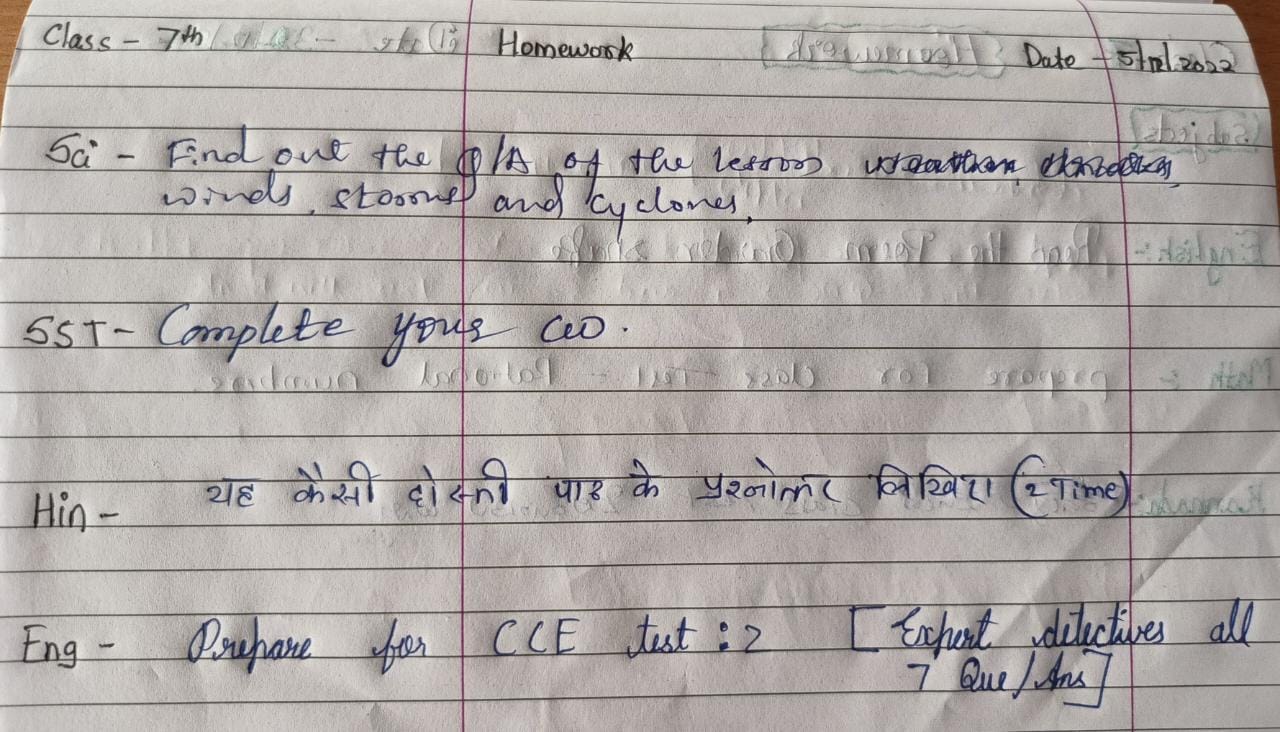 Class - 7th Homework Date - 5/12/2022
Sci - Find out the Q/A of the lesson
winds, storms and cyclones,
SST - Complete your CW.
Hin - यह कैसी दोस्ती पाठ के प्रश्नोत्तर लिखिए। (2 Time)
Eng - Prepare for CCE test : 2 [Expert detectives all
7 Que/Ans]